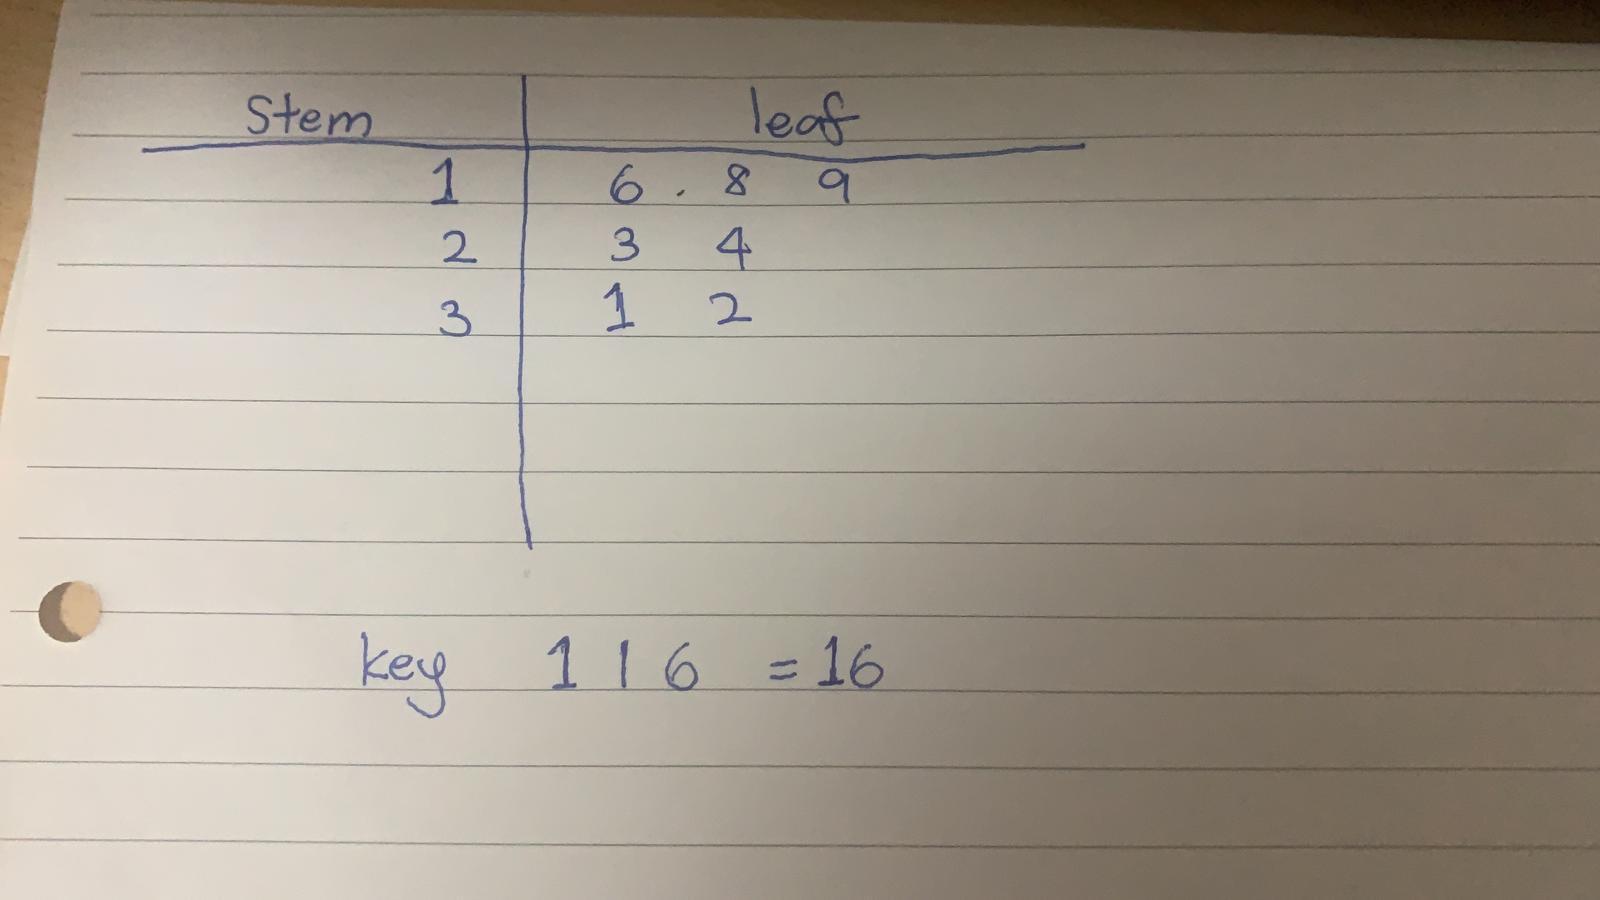 Stem | leaf
1 | 6 . 8 9
2 | 3 4
3 | 1 2
key 1 | 6 = 16